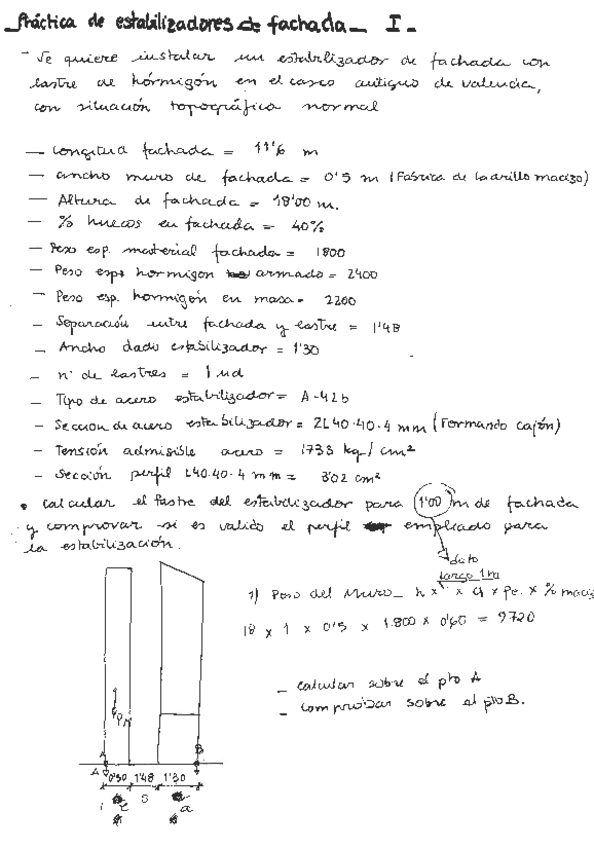 Práctica de estabilizadores de fachada_ I_
- Se quiere instalar un estabilizador de fachada con
lastre de hórmigón en el casco antiguo de valencia,
con situación topográfica normal
— Longitud fachada = 11'6 m
— ancho muro de fachada = 0'5 m (Fabrica de ladrillo macizo)
— Altura de fachada = 18'00 m.
— % huecos en fachada = 40%
— Peso esp. material fachada = 1800
— Peso esp. hormigon armado = 2400
— Peso esp. hormigón en masa = 2200
— Separación entre fachada y lastre = 1'48
— Ancho dado estabilizador = 1'30
— nº de lastres = 1 ud
— Tipo de acero estabilizador = A-42b
— Seccion de acero estabilizador = 2L40·40·4 mm (Formando cajón)
— Tensión admisible acero = 1733 kg/cm²
— Sección perfil L40·40·4 mm = 3'02 cm²
• Calcular el lastre del estabilizador para 1'00 m de fachada
y comprovar si es valido el perfil empleado para
la estabilización.
dato
largo 1m
1) Peso del Muro_ h x " x a x pe. x % maciz
18 x 1 x 0'5 x 1.800 x 0'60 = 9720
— calcular sobre el pto A
— comprobar sobre el pto B.
PM
A B
A
0'50 1'48 1'30
e s a